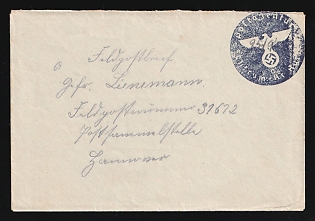 Feldpostbrief
Gefr. Lienemann.
Feldpostnummer 31672
Postsammelstelle
Hannover